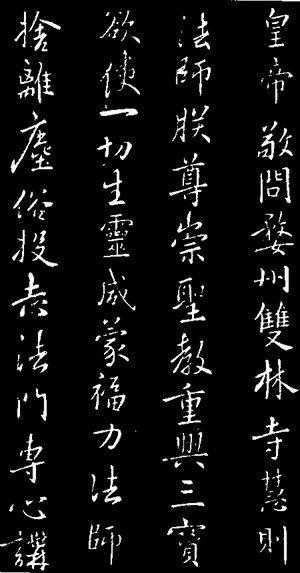 皇帝敬問婺州雙林寺慧則
法師朕尊崇聖教重興三寶
欲使一切生靈咸蒙福力法師
捨離塵俗投志法門専心講